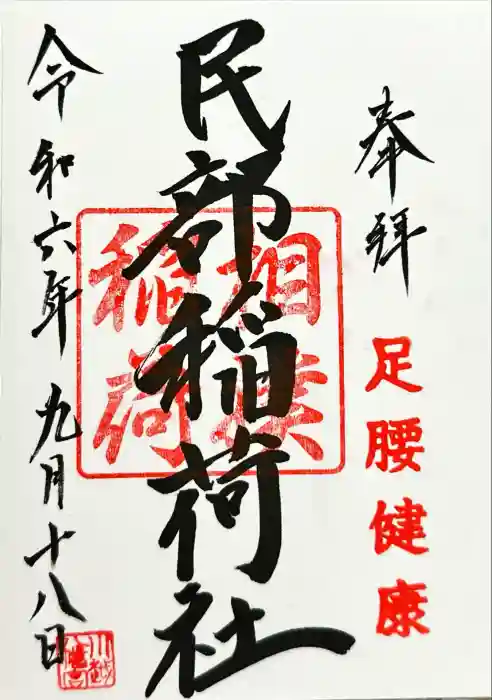 奉拝
足腰健康
民部稲荷社
相撲
稲荷
令和六年九月十八日